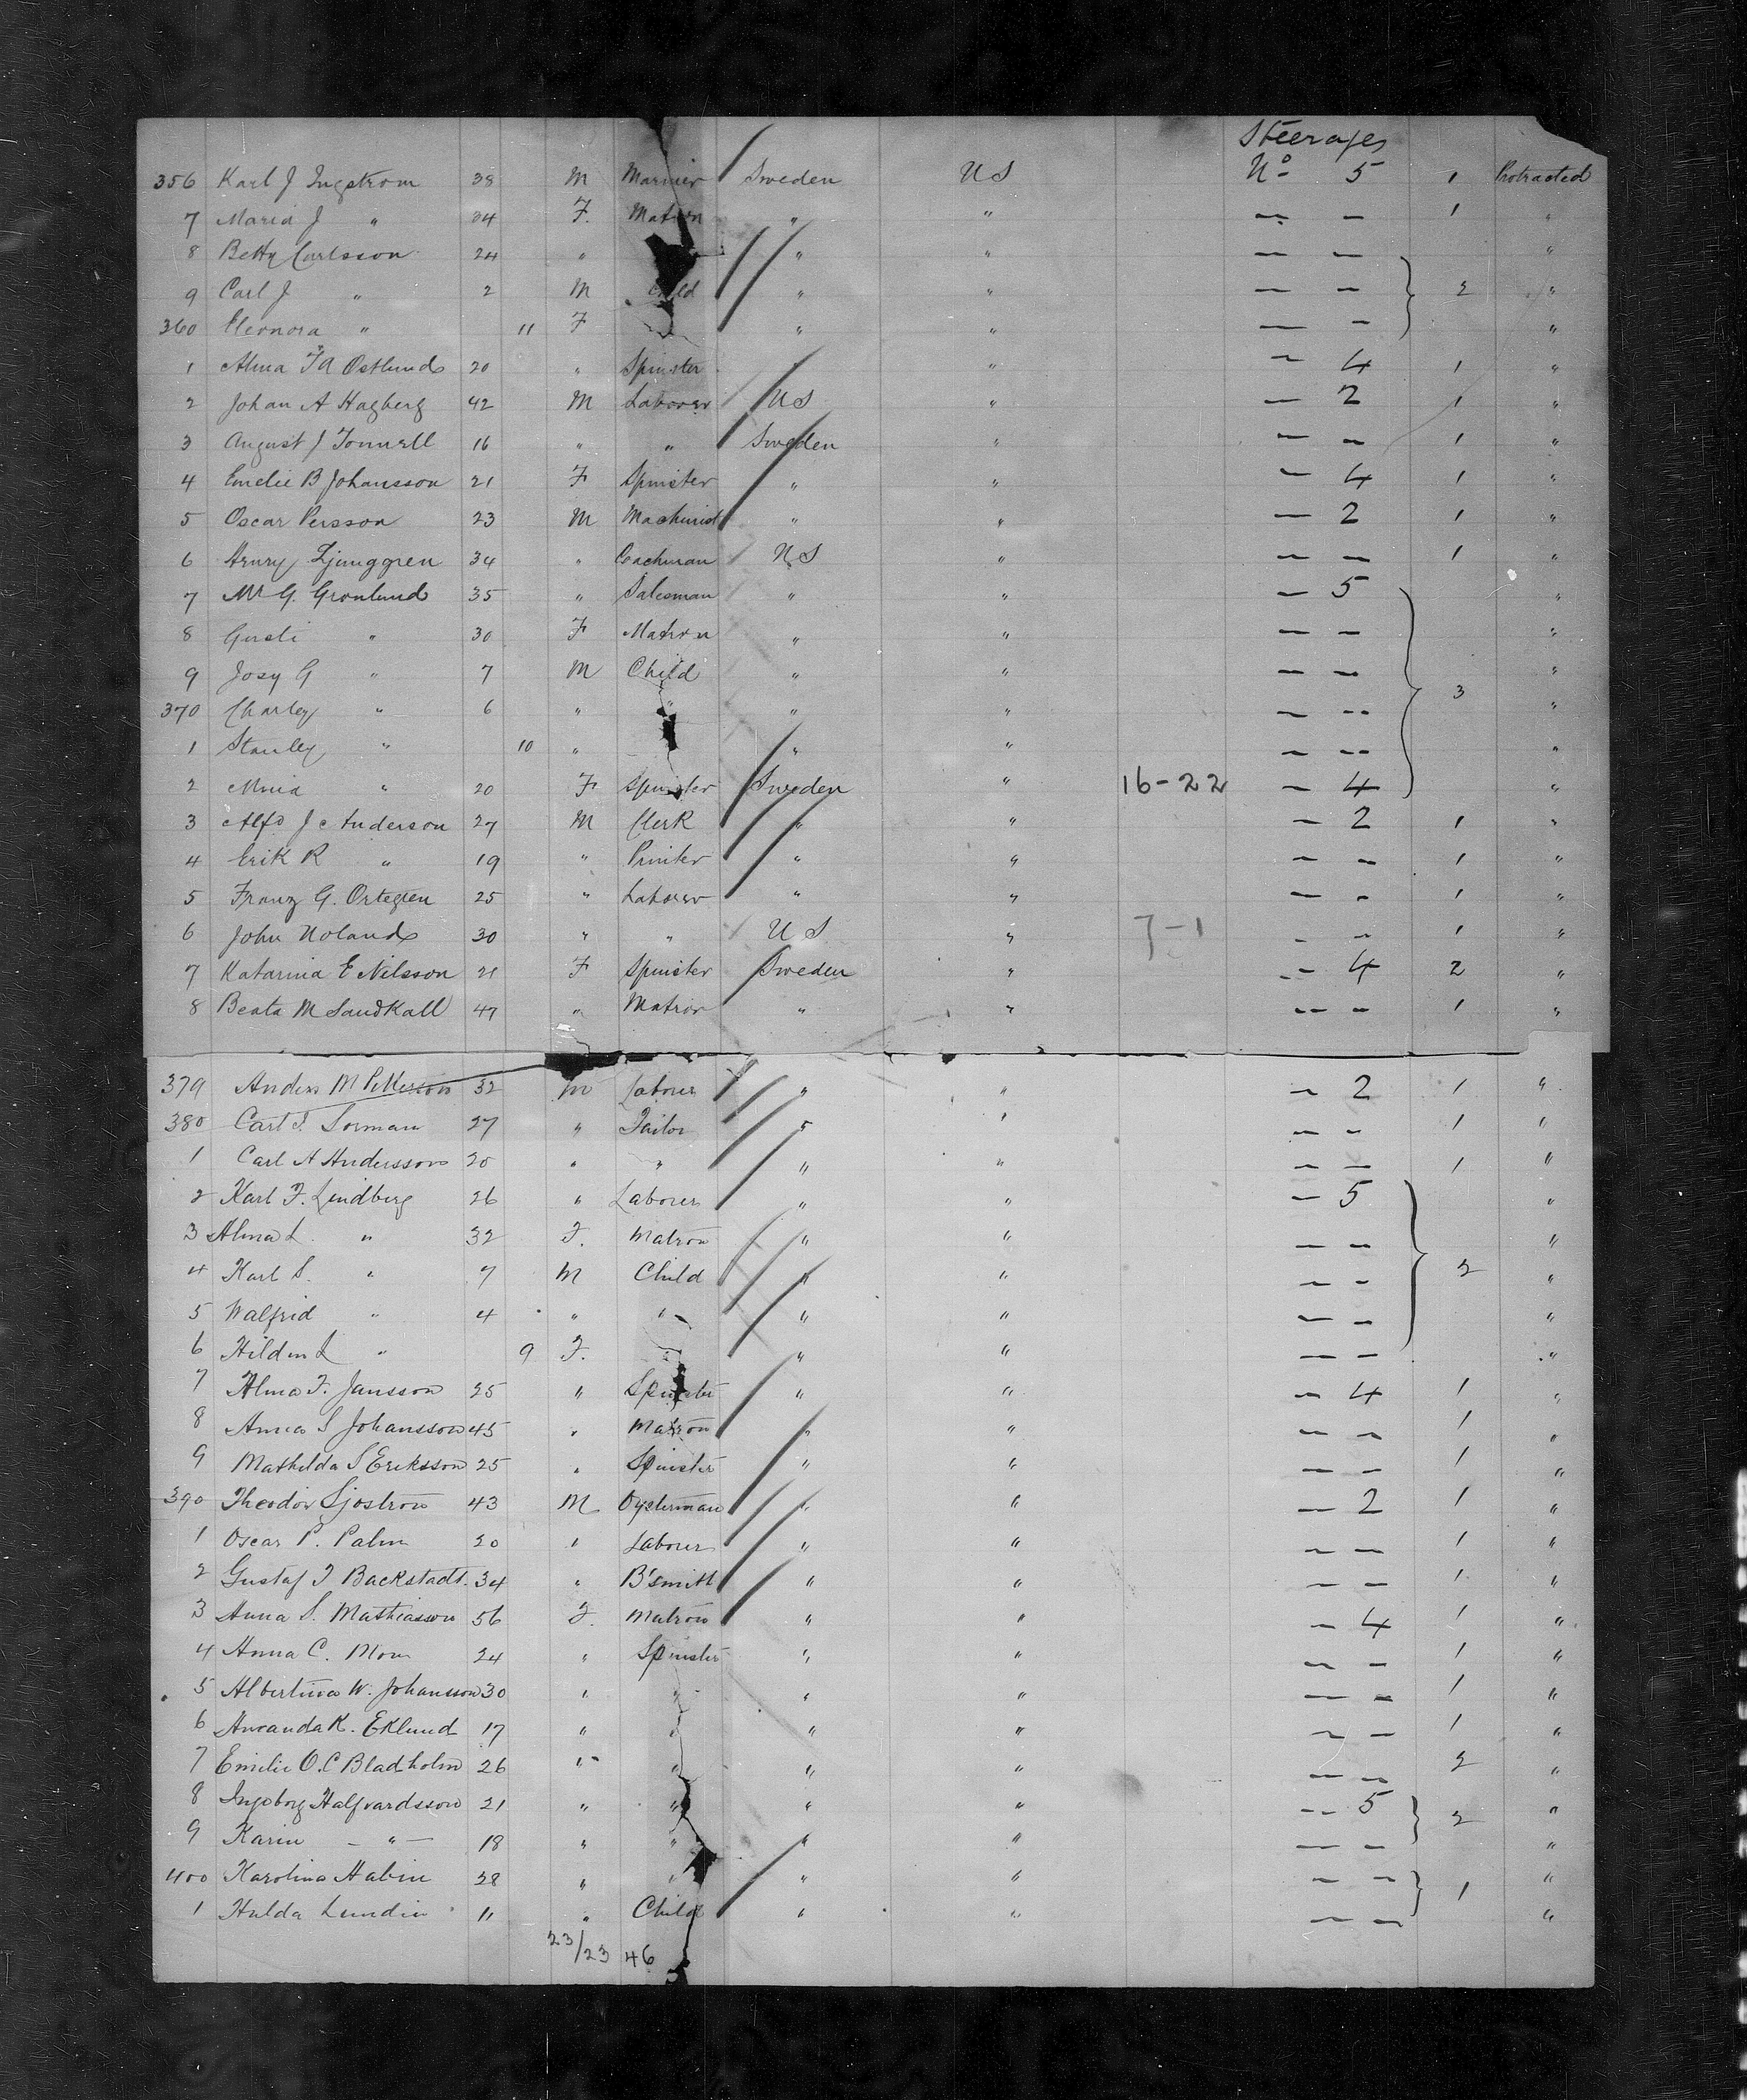 Steerages
356 Karl J Ingstrom 38 M Marinier Sweden US No 5 1 Protracted
7 Maria J " 34 F. Matron " " — — 1 "
8 Betty Carlsson 24 " " " — — "
9 Carl J " 2 M Child " " — — 2 "
360 Eleonora " 11 F " " — — "
1 Alma F A Ostlund 20 " Spinster " — 4 1 "
2 Johan A Hagberg 42 M Laborer US " — 2 1 "
3 August J Tonnell 16 " " Sweden " — — 1 "
4 Emelie B Johansson 21 F Spinster " " — 4 1 "
5 Oscar Persson 23 M Machinist " " — 2 1 "
6 Henry Ljunggren 34 " Coachman US " — — 1 "
7 Mr G. Gronlund 35 " Salesman " " — 5 "
8 Gusti " 30 F Matron " " — — "
9 Josy G " 7 M Child " " — — "
370 Charley " 6 " " " " — — 3 "
1 Stanley " 10 " " " — — "
2 " 20 F Spinster Sweden " 16-22 — 4 "
3 Alfd J Anderson 27 M Clerk " " — 2 1 "
4 Erik R " 19 " Printer " " — — 1 "
5 Franz G. Ortegren 25 " Laborer " " — — 1 "
6 John Noland 30 " " US " 7-1 — — 1 "
7 Katarina E Nilsson 21 F Spinster Sweden " — 4 2 "
8 Beata M Sandkall 47 " Matron " " — — 1 "
379 Anders M Petterson 32 M Laborer " " — 2 1 "
380 Carl I. Sorman 27 " Tailor " " — — 1 "
1 Carl A Andersson 20 " " " " — — 1 "
2 Karl F. Lindberg 26 " Laborer " " — 5 "
3 Alma L. " 32 F. Matron " " — — "
4 Karl S. " 7 M Child " " — — 2 "
5 Walfrid " 4 " " " " — — "
6 " 9 F. " " " — — "
7 Alma F. Jansson 25 " Spinster " " — 4 1 "
8 Anna S Johansson 45 " Matron " " — — 1 "
9 Mathilda S Eriksson 25 " Spinster " " — — 1 "
390 Theodor Sjostrom 43 M Oysterman " " — 2 1 "
1 Oscar P. Palm 20 " Laborer " " — — 1 "
2 Gustaf I Backstadt. 34 " B'smith " " — — 1 "
3 Anna S. Mathiasson 56 F. Matron " " — 4 1 "
4 Anna C. 24 " Spinster " " — — 1 "
5 Albertina W. Johansson 30 " " " " — — 1 "
6 Amanda K. Eklund 17 " " " " — — 1 "
7 Emilie O. C Bladholm 26 " " " " — — 2 "
8 Ingeborg Halfvardsson 21 " " " " — 5 2 "
9 Karin — " — 18 " " " " — — "
400 Karolina 28 " " " " — — 1 "
1 Hulda Lundin 11 " Child " " — — "
23/23 46